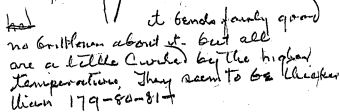 it bends fairly good
no brittleness about it. but all
are a little Curled by the higher
temperature, They seem to be cheaper
than 179-80-81-